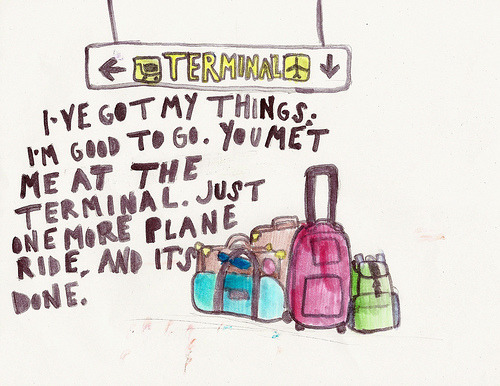 TERMINAL
I'VE GOT MY THINGS.
I'M GOOD TO GO. YOU MET
ME AT THE
TERMINAL. JUST
ONE MORE PLANE
RIDE, AND ITS
DONE.